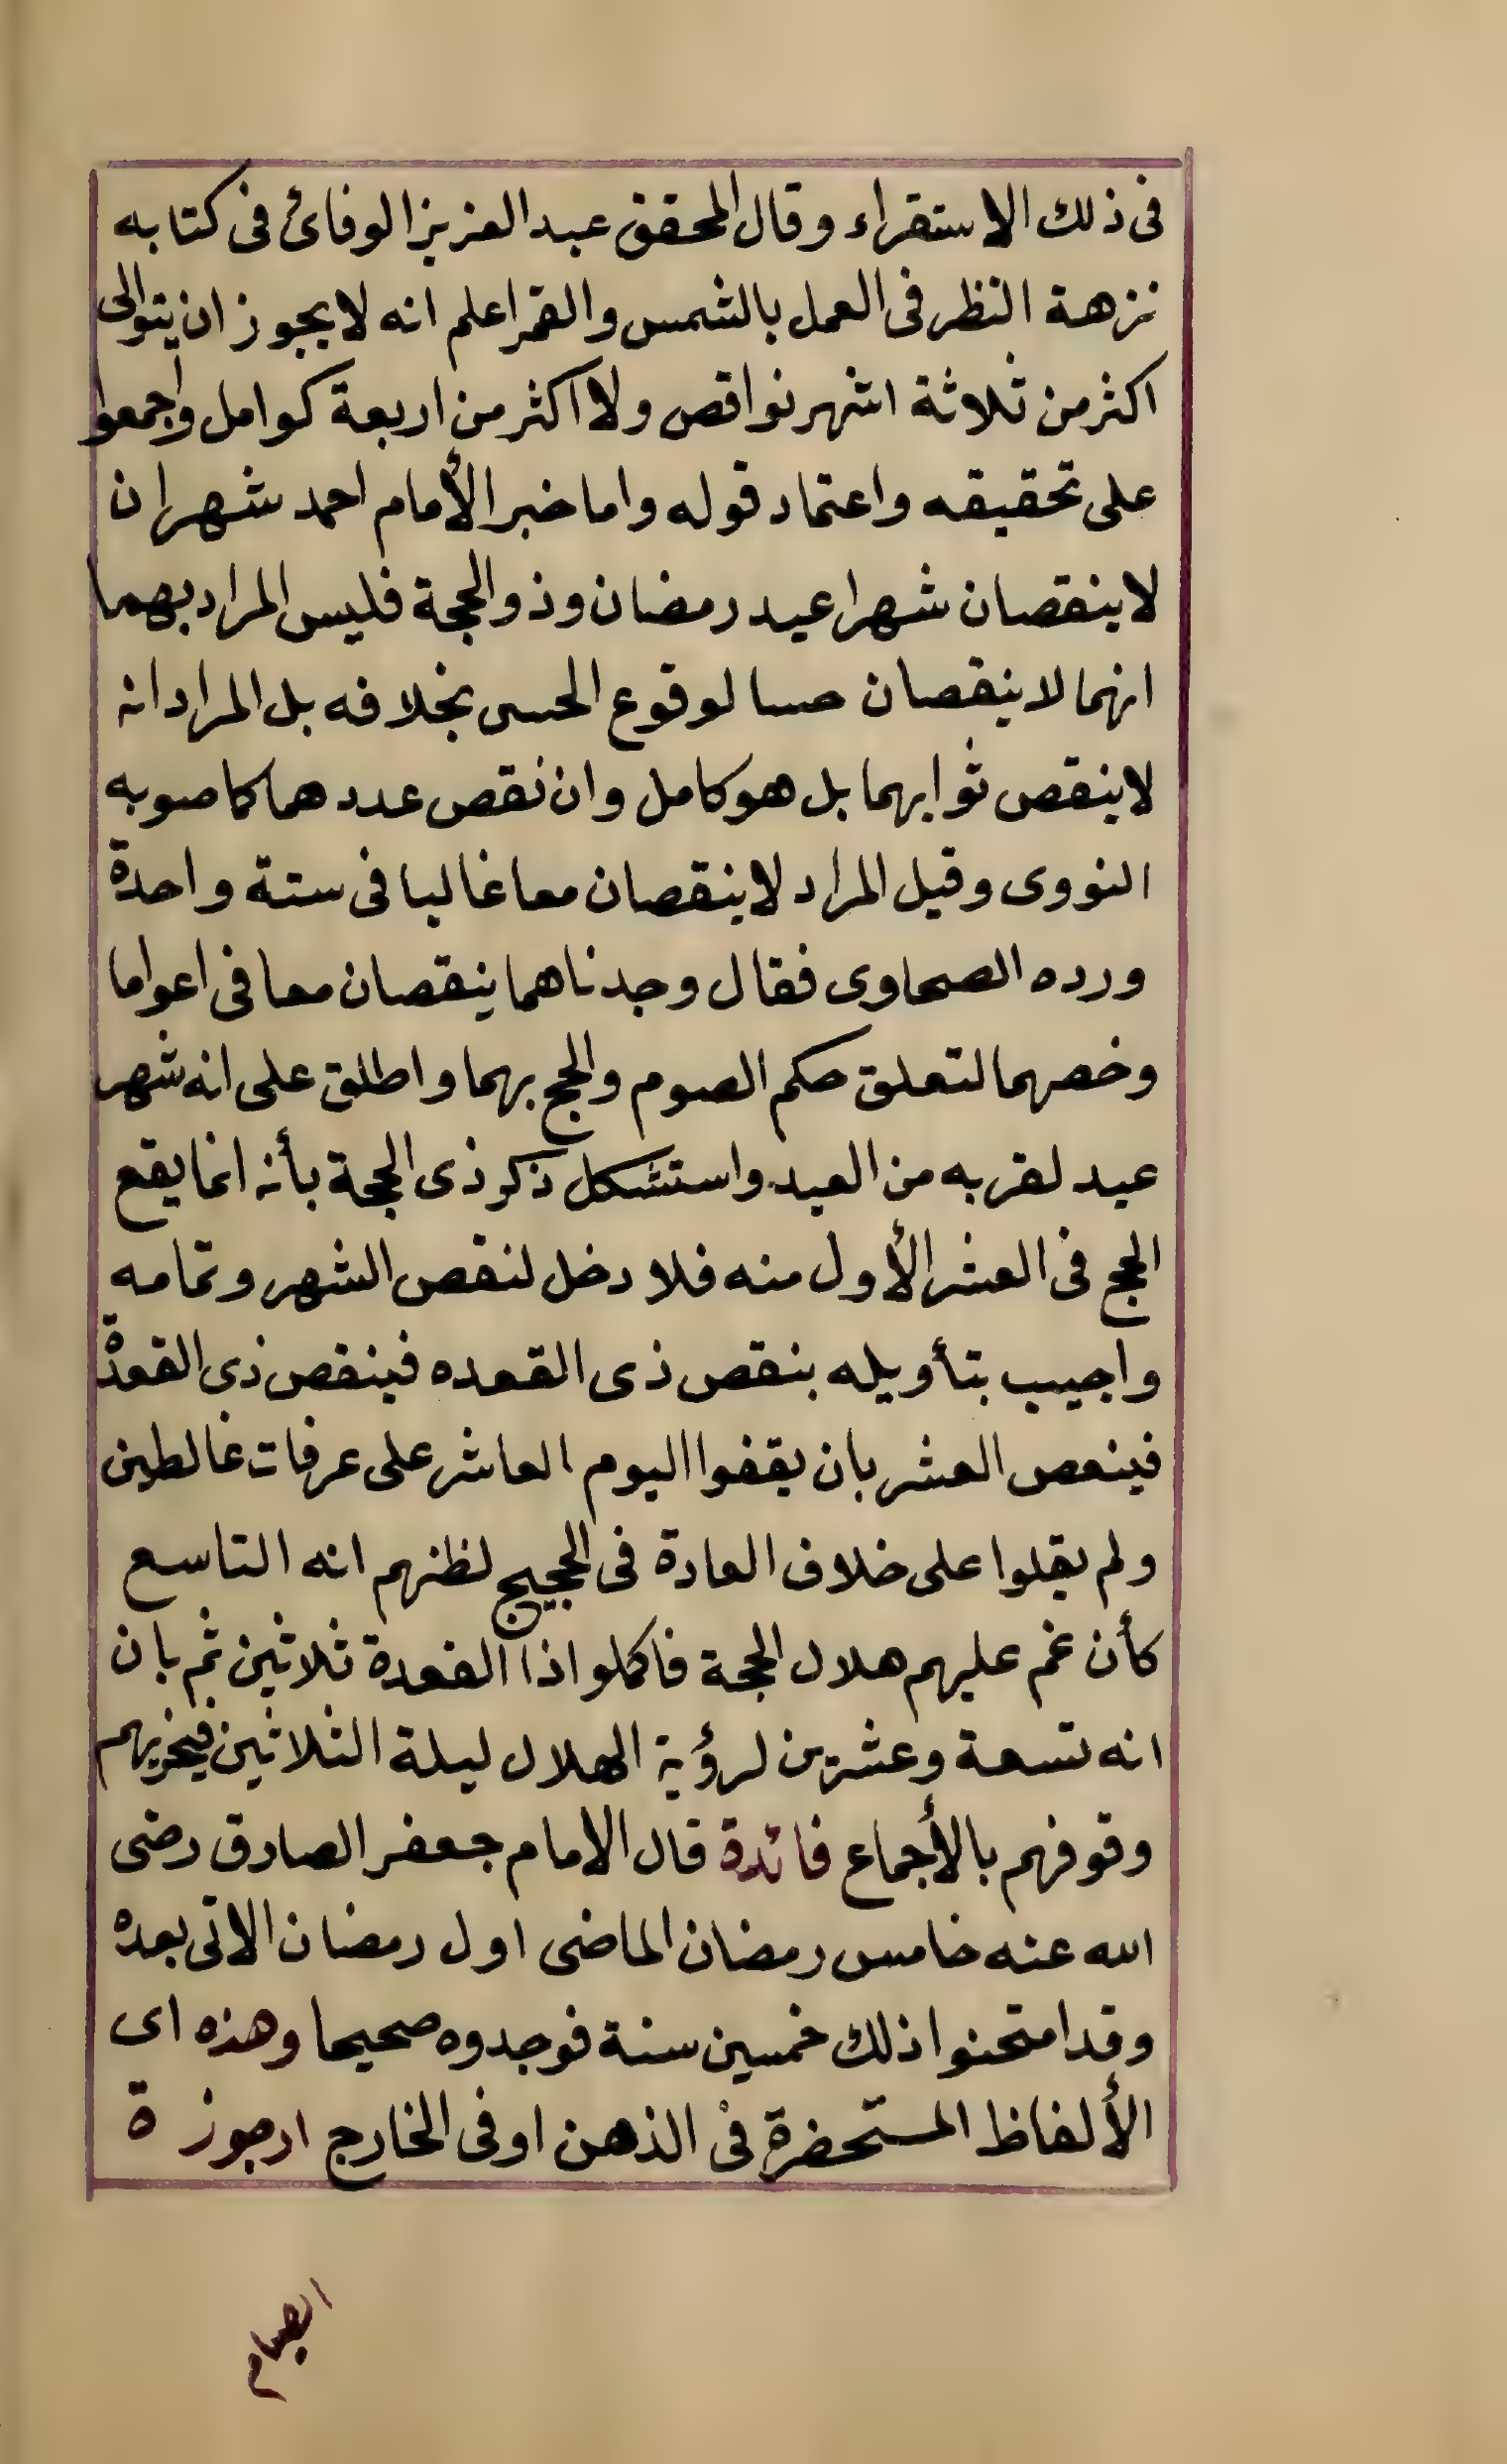 فى ذلك الاستقراء وقال المحقق عبد العزيز الوفائ فى كتابه
نزهة النظر فى العمل بالشمس والقمر اعلم انه لا يجوز ان يتوالى
اكثر من ثلاثة اشهر نواقص ولا اكثر من اربعة كوامل وأجمعوا
على تحقيقه واعتماد قوله واما خبر الأمام احمد شهران
لا ينقصان شهرا عيد رمضان وذو الحجة فليس المراد بهما
انهما لا ينقصان حسا لوقوع الحسى بخلافه بل المراد انه
لا ينقص ثوابهما بل هو كامل وان نقص عددهما كما صوبه
النووى وقيل المراد لا ينقصان معا غالبا فى ستة واحدة
ورده الصحاوى فقال وجدناهما ينقصان معا فى اعواما
وخصهما لتعلق حكم الصوم والحج بهما واطلق على انه شهر
عيد لقربه من العيد واستشكل ذكر ذى الحجة بأنه انما يقع
الحج فى العشر الأول منه فلا دخل لنقص الشهر وتمامه
واجيب بتأويله بنقص ذى القعده فينقص ذى القعدة
فينعص العشر بان يقفوا اليوم العاشر على عرفات غالطين
ولم يقلوا على خلاف العادة فى الحجيج لظنهم انه التاسع
كأن غم عليهم هلال الحجة فاكملوا ذا القعدة ثلاثين ثم بان
انه تسعة وعشرين لرؤية الهلال ليلة الثلاثين فيجزيهم
وقوفهم بالأجماع فائدة قال الامام جعفر الصادق رضى
الله عنه خامس رمضان الماضى اول رمضان الاتى بعده
وقد امتحنوا ذلك خمسين سنة فوجدوه صحيحا وهذه اى
الألفاظ المستحضرة فى الذهن او فى الخارج ارجوزة
الصيام